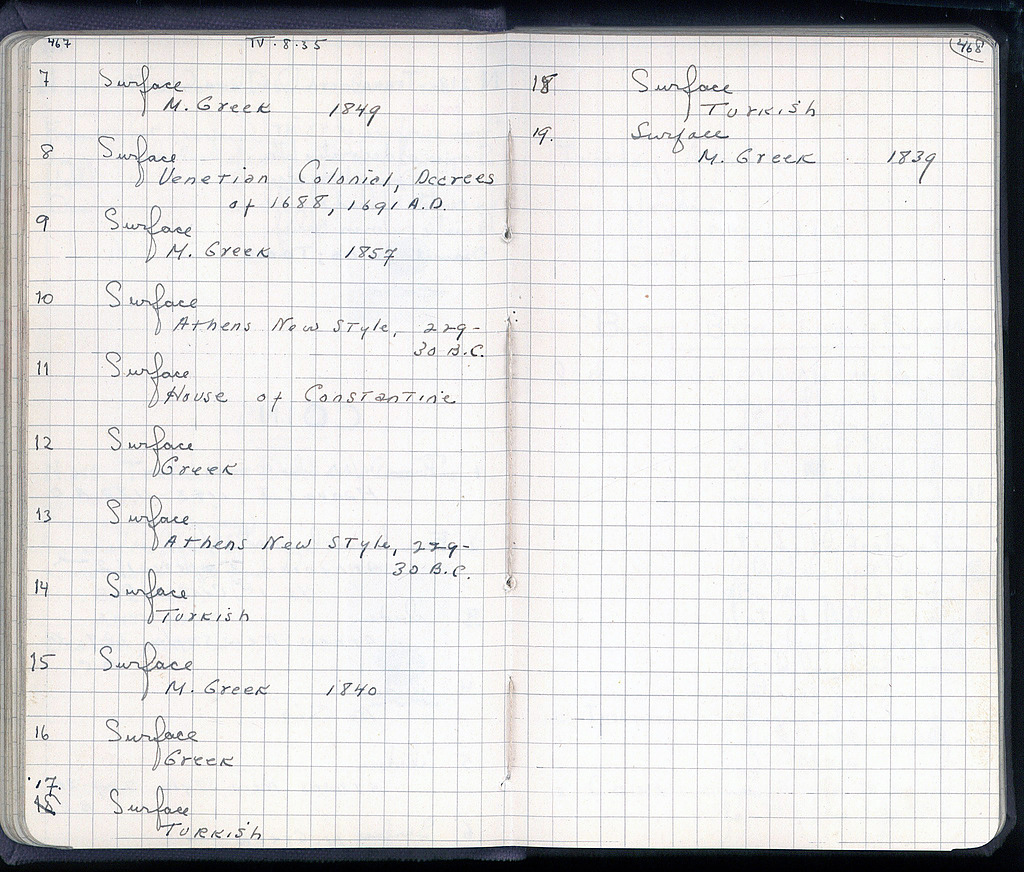 467
IV.8.35
7 Surface
M. Greek 1849
8 Surface
Venetian Colonial, Decrees
of 1688, 1691 A.D.
9 Surface
M. Greek 1857
10 Surface
Athens New Style, 229-
30 B.C.
11 Surface
House of Constantine
12 Surface
Greek
13 Surface
Athens New Style, 229-
30 B.C.
14 Surface
Turkish
15 Surface
M. Greek 1840
16 Surface
Greek
17. Surface
Turkish
468
18 Surface
Turkish
19. Surface
M. Greek 1839